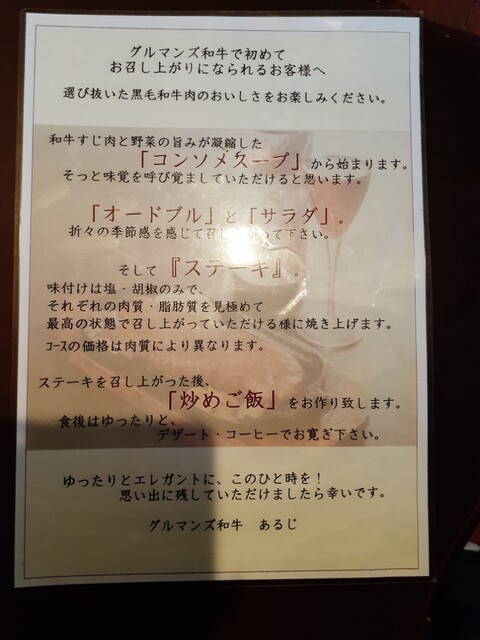 グルマンズ和牛で初めて
お召し上がりになられるお客様へ
選び抜いた黒毛和牛肉のおいしさをお楽しみください。
和牛すじ肉と野菜の旨みが凝縮した
「コンソメスープ」から始まります。
そっと味覚を呼び覚ましていただけると思います。
「オードブル」と「サラダ」。
折々の季節感を感じて召し上がって下さい。
そして『ステーキ』。
味付けは塩・胡椒のみで、
それぞれの肉質・脂肪質を見極めて
最高の状態で召し上がっていただける様に焼き上げます。
ｺｰｽの価格は肉質により異なります。
ステーキを召し上がった後、
「炒めご飯」をお作り致します。
食後はゆったりと、
デザート・コーヒーでお寛ぎ下さい。
ゆったりとエレガントに、このひと時を！
思い出に残していただけましたら幸いです。
グルマンズ和牛　あるじ